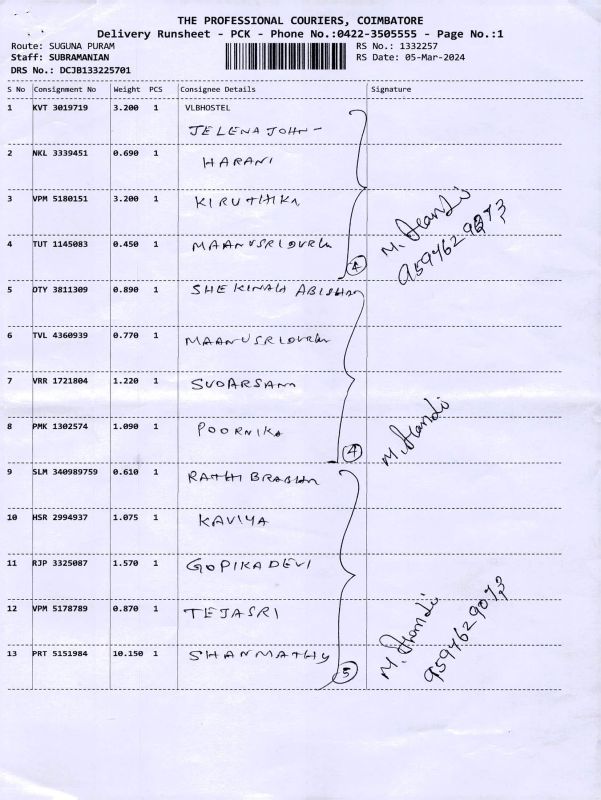 THE PROFESSIONAL COURIERS, COIMBATORE
Delivery Runsheet - PCK - Phone No.:0422-3505555 - Page No.:1
Route: SUGUNA PURAM RS No.: 1332257
Staff: SUBRAMANIAN RS Date: 05-Mar-2024
DRS No.: DCJB133225701
S No Consignment No Weight PCS Consignee Details Signature
1 KVT 3019719 3.200 1 VLBHOSTEL
JELENA JOHN -
2 NKL 3339451 0.690 1 HARANI
3 VPM 5180151 3.200 1 KIRUTHIKA
4 TUT 1145083 0.450 1 MAANUSRIDURGA
4
5 DTY 3811309 0.890 1 SHEKINAH ABISHA
6 TVL 4360939 0.770 1 MAANUSRIDURGA
7 VRR 1721804 1.220 1 SUDARSANA
8 PMK 1302574 1.090 1 POORNIKA
4
9 SLM 340989759 0.610 1 RATHI BRABHA
10 HSR 2994937 1.075 1 KAVIYA
11 RJP 3325087 1.570 1 GOPIKADEVI
12 VPM 5178789 0.870 1 TEJASRI
13 PRT 5151984 10.150 1 SHANMATHY
5
9594629073